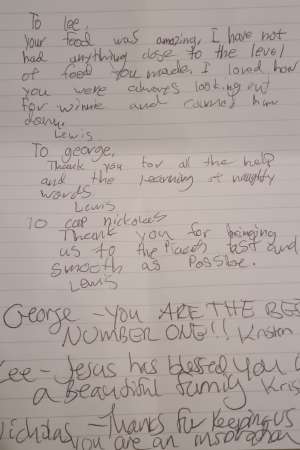 To Lee,
Your food was amazing, I have not
had anything close to the level
of food you made. I loved how
you were always looking out
for winnie and calmed him
down.
Lewis
To george,
Thank you for all the help
and the learning of naughty
words.
Lewis
To cap nickolas
Thank you for bringing
us to the places fast and
smooth as Possible.
Lewis
George - YOU ARE THE BES
NUMBER ONE!! Kristen
Lee - Jesus has blessed you
a beautiful family Kris
Nicholas - Thanks for keeping us
you are an inspiration